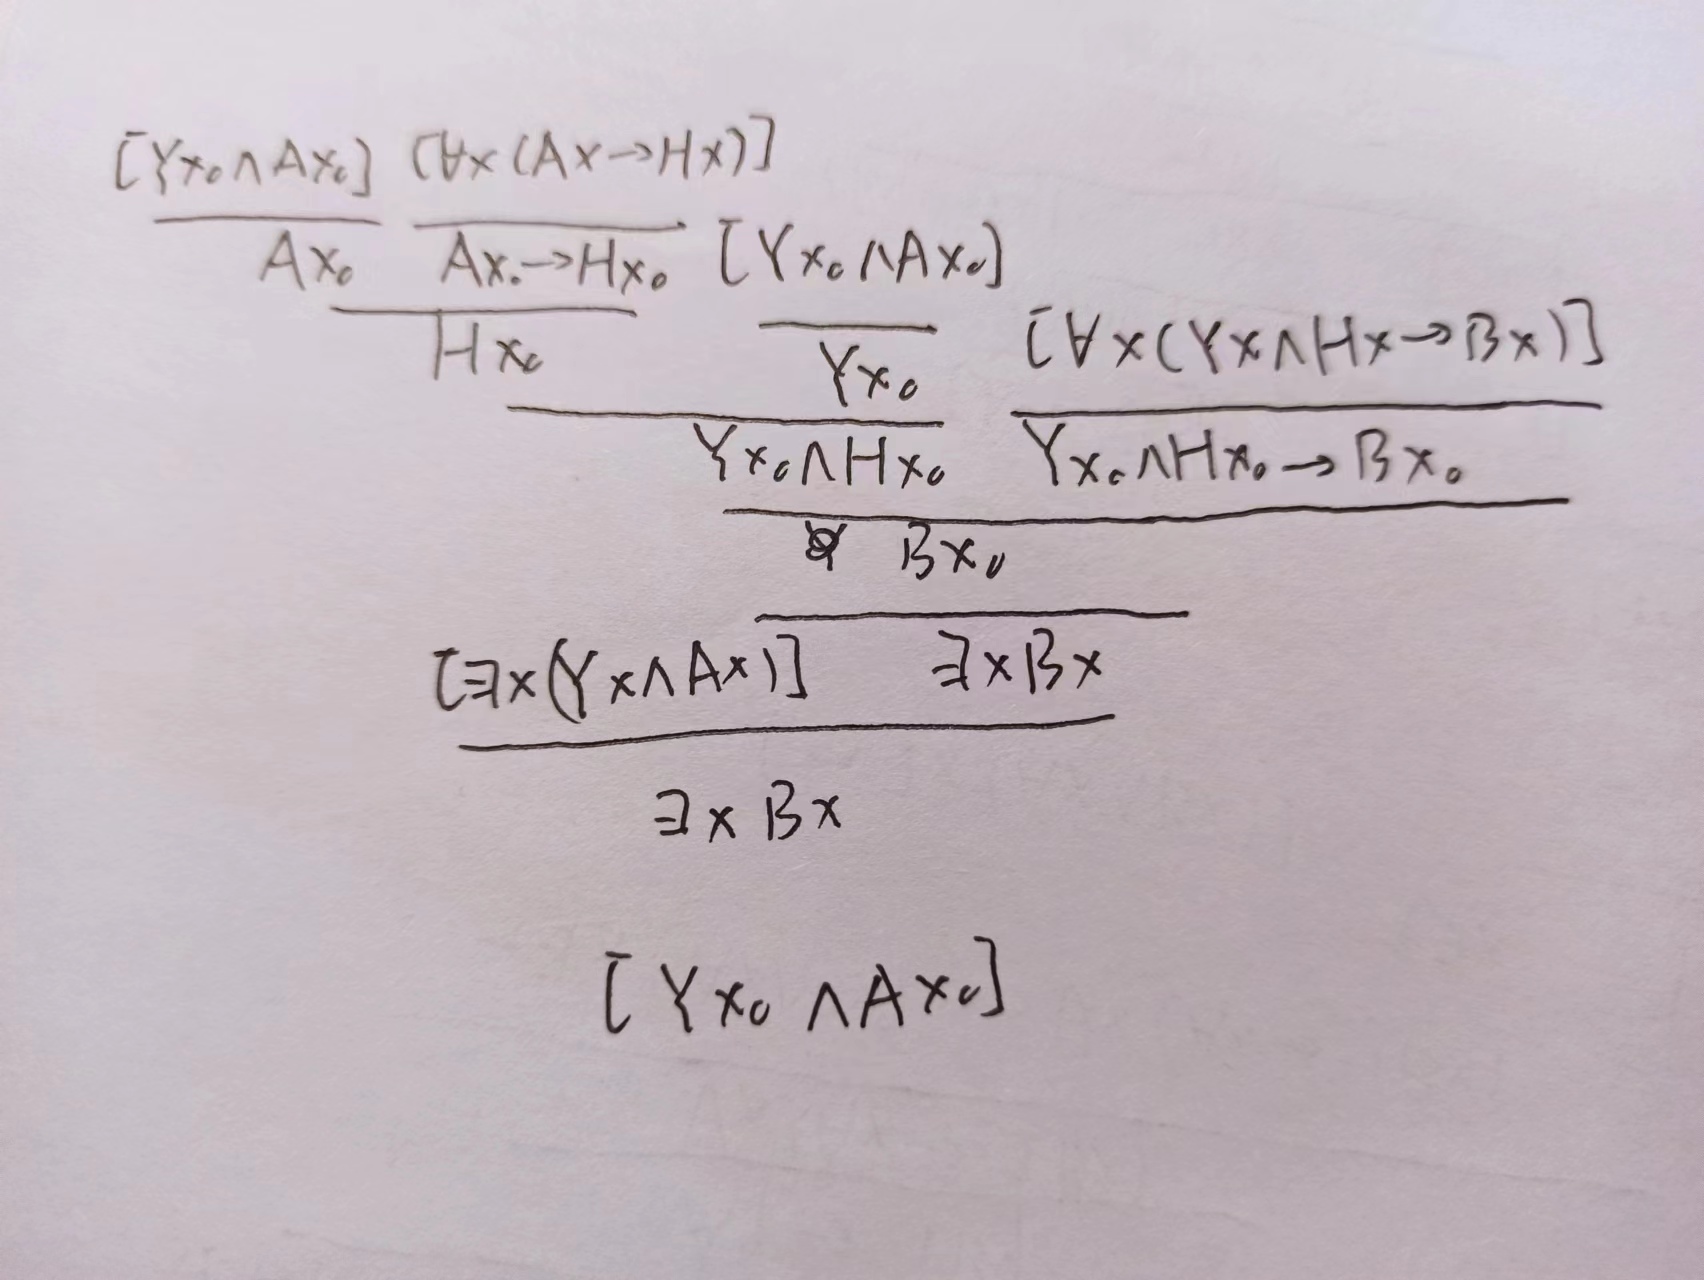 [Yx₀∧Ax₀] [∀x(Ax→Hx)]
Ax₀ Ax₀→Hx₀ [Yx₀∧Ax₀]
Hx₀ Yx₀ [∀x(Yx∧Hx→Bx)]
Yx₀∧Hx₀ Yx₀∧Hx₀→Bx₀
Bx₀
[∃x(Yx∧Ax)] ∃xBx
∃xBx
[Yx₀∧Ax₀]